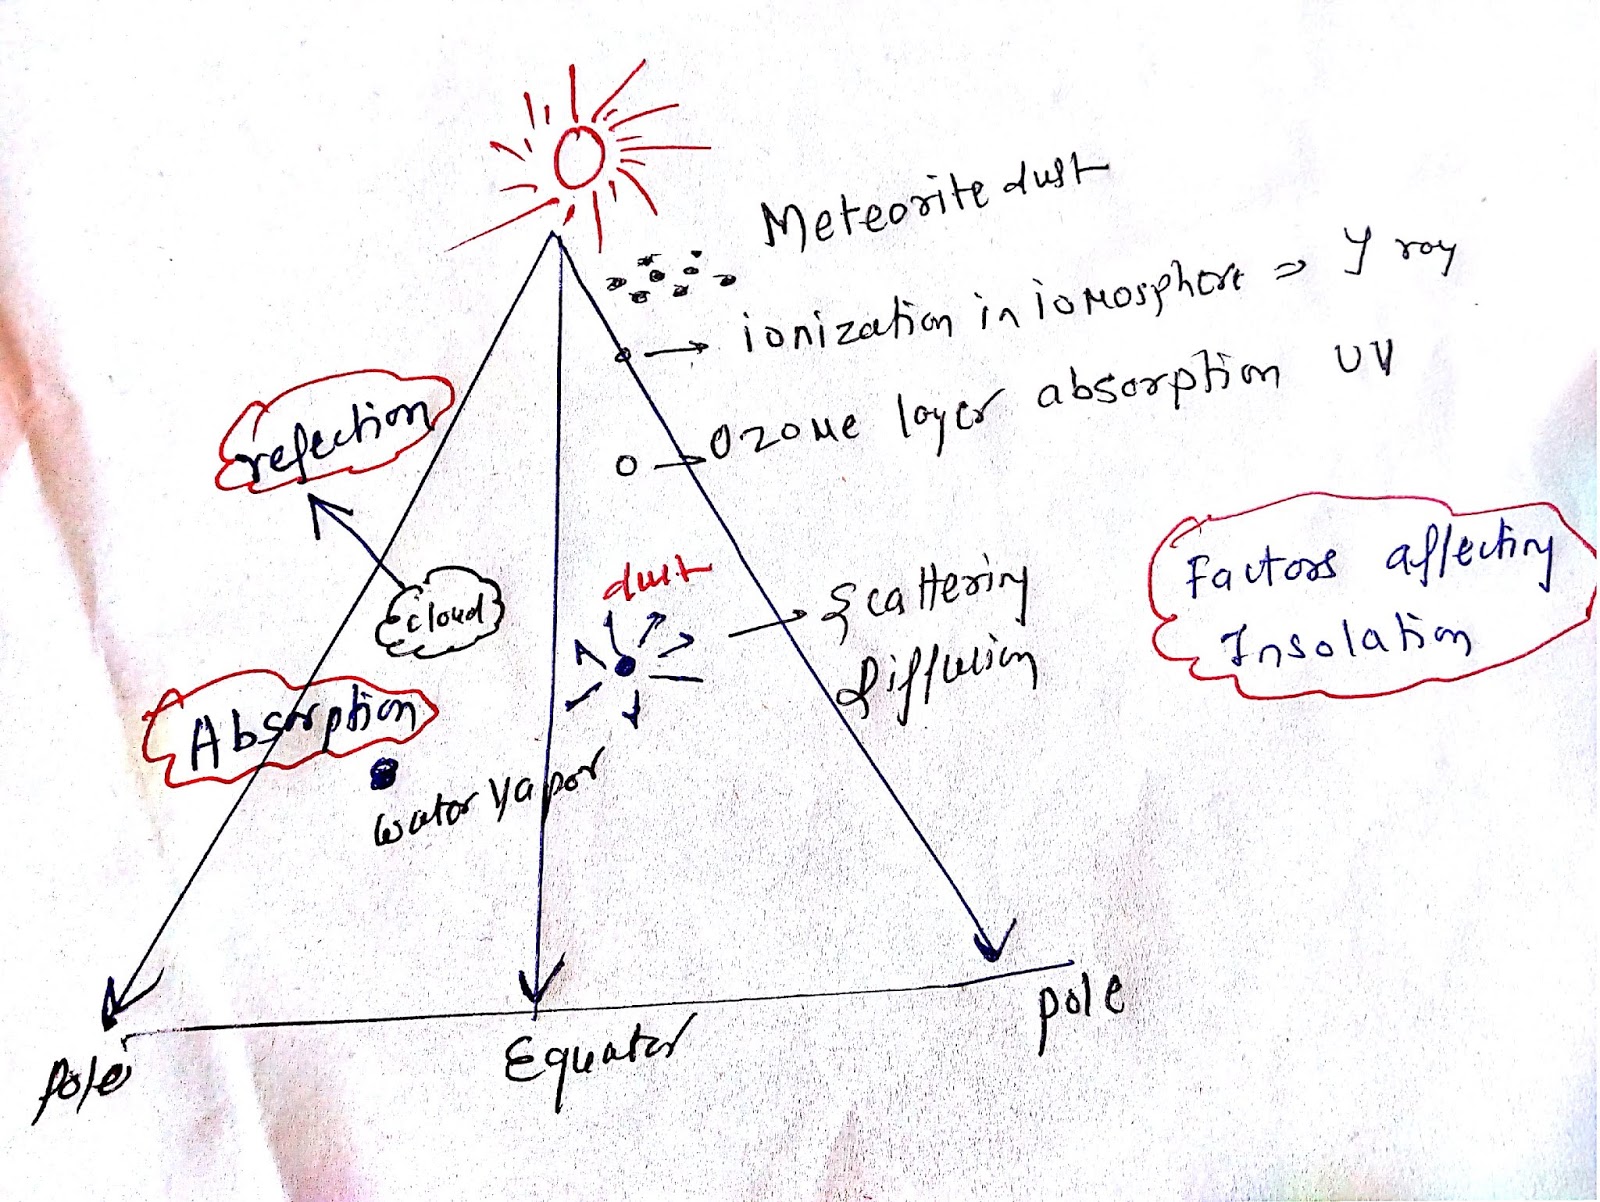 Meteorite dust
ionization in ionosphere => γ ray
Ozone layer absorption UV
refection
cloud
dust
Scattering
diffusion
Factors affecting
Insolation
Absorption
water vapor
pole
Equator
pole